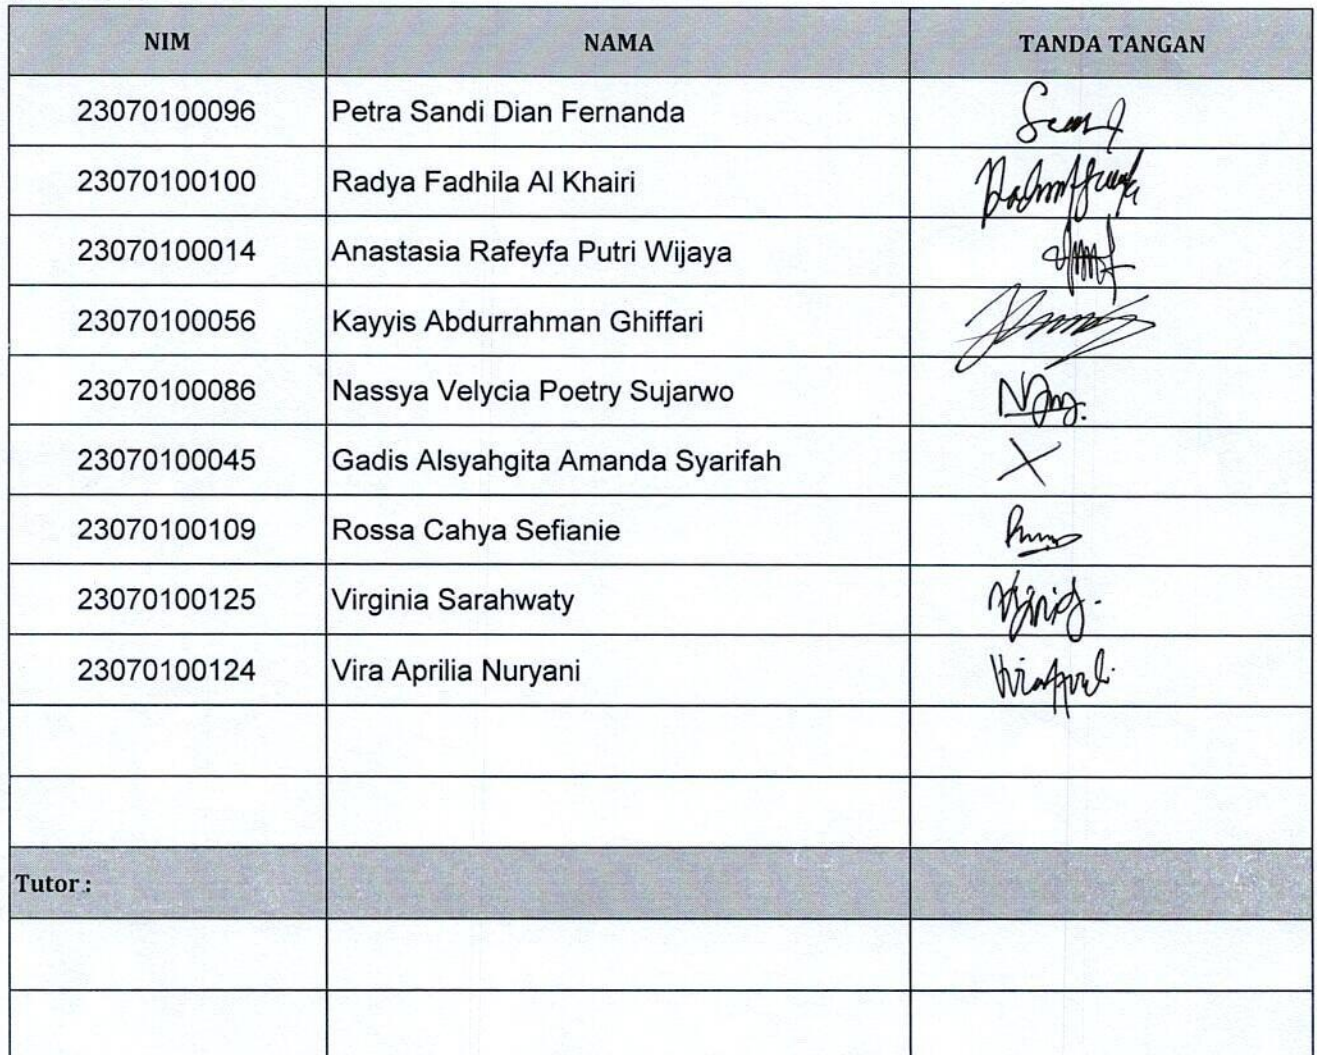 NIM NAMA TANDA TANGAN
23070100096 Petra Sandi Dian Fernanda
23070100100 Radya Fadhila Al Khairi
23070100014 Anastasia Rafeyfa Putri Wijaya
23070100056 Kayyis Abdurrahman Ghiffari
23070100086 Nassya Velycia Poetry Sujarwo
23070100045 Gadis Alsyahgita Amanda Syarifah X
23070100109 Rossa Cahya Sefianie
23070100125 Virginia Sarahwaty
23070100124 Vira Aprilia Nuryani
Tutor :